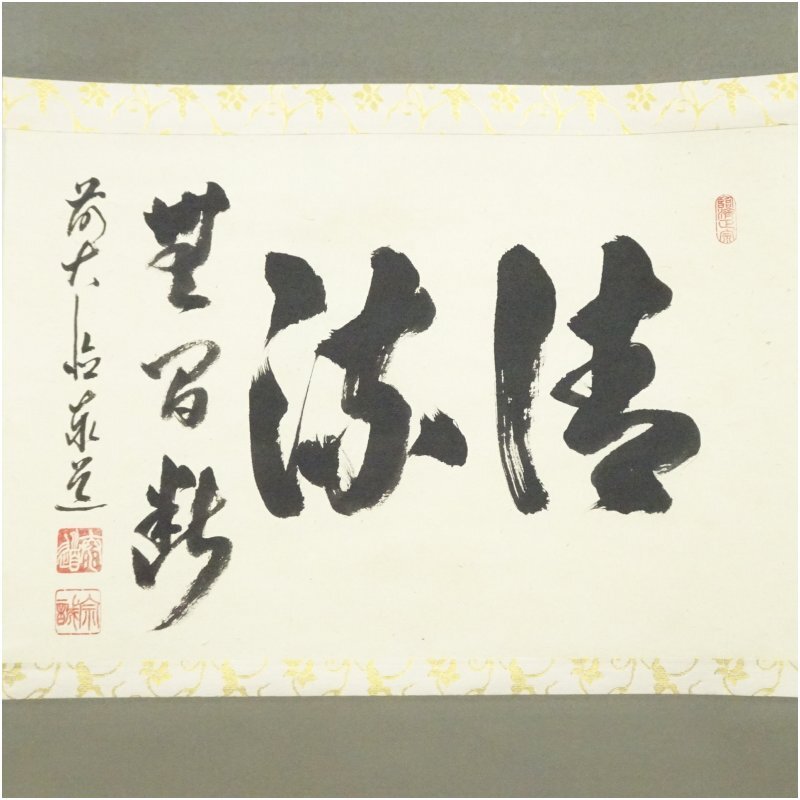 清流
無間断
前大徳泰道